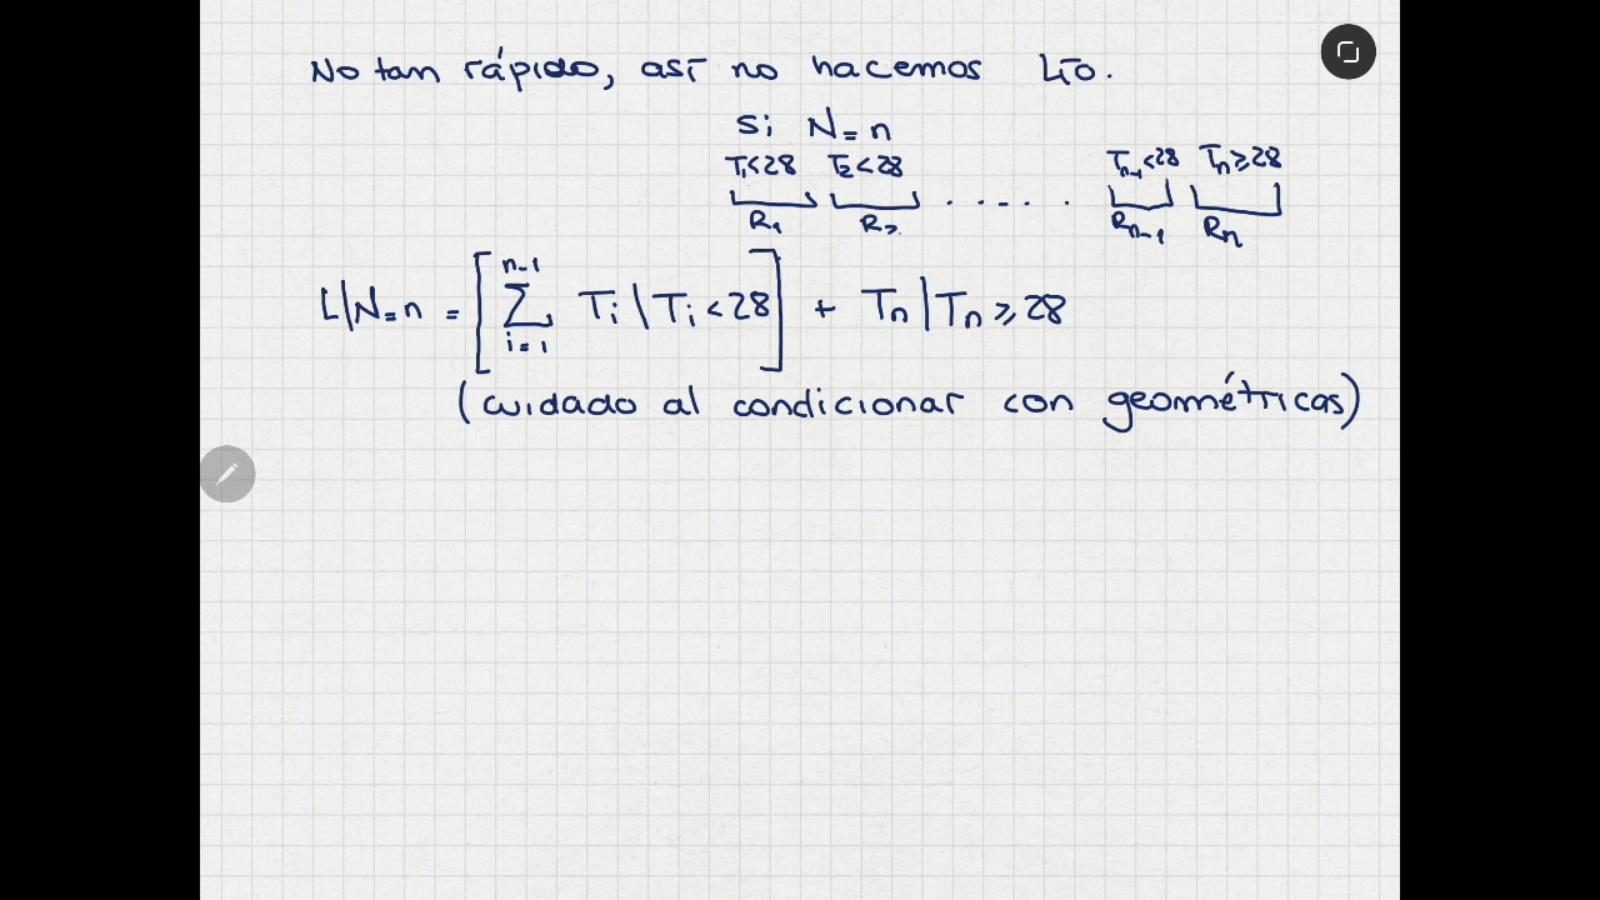 No tam rápido, así no hacemos Lío.
Si N=n
T₁<28 T₂<28 Tₙ₋₁<28 Tₙ≥28
R₁ R₂ ..... Rₙ₋₁ Rₙ
L|N=n = [ n-1 ∑ i=1 Ti | Ti<28 ] + Tn | Tn ≥ 28
(cuidado al condicionar con geométricas)